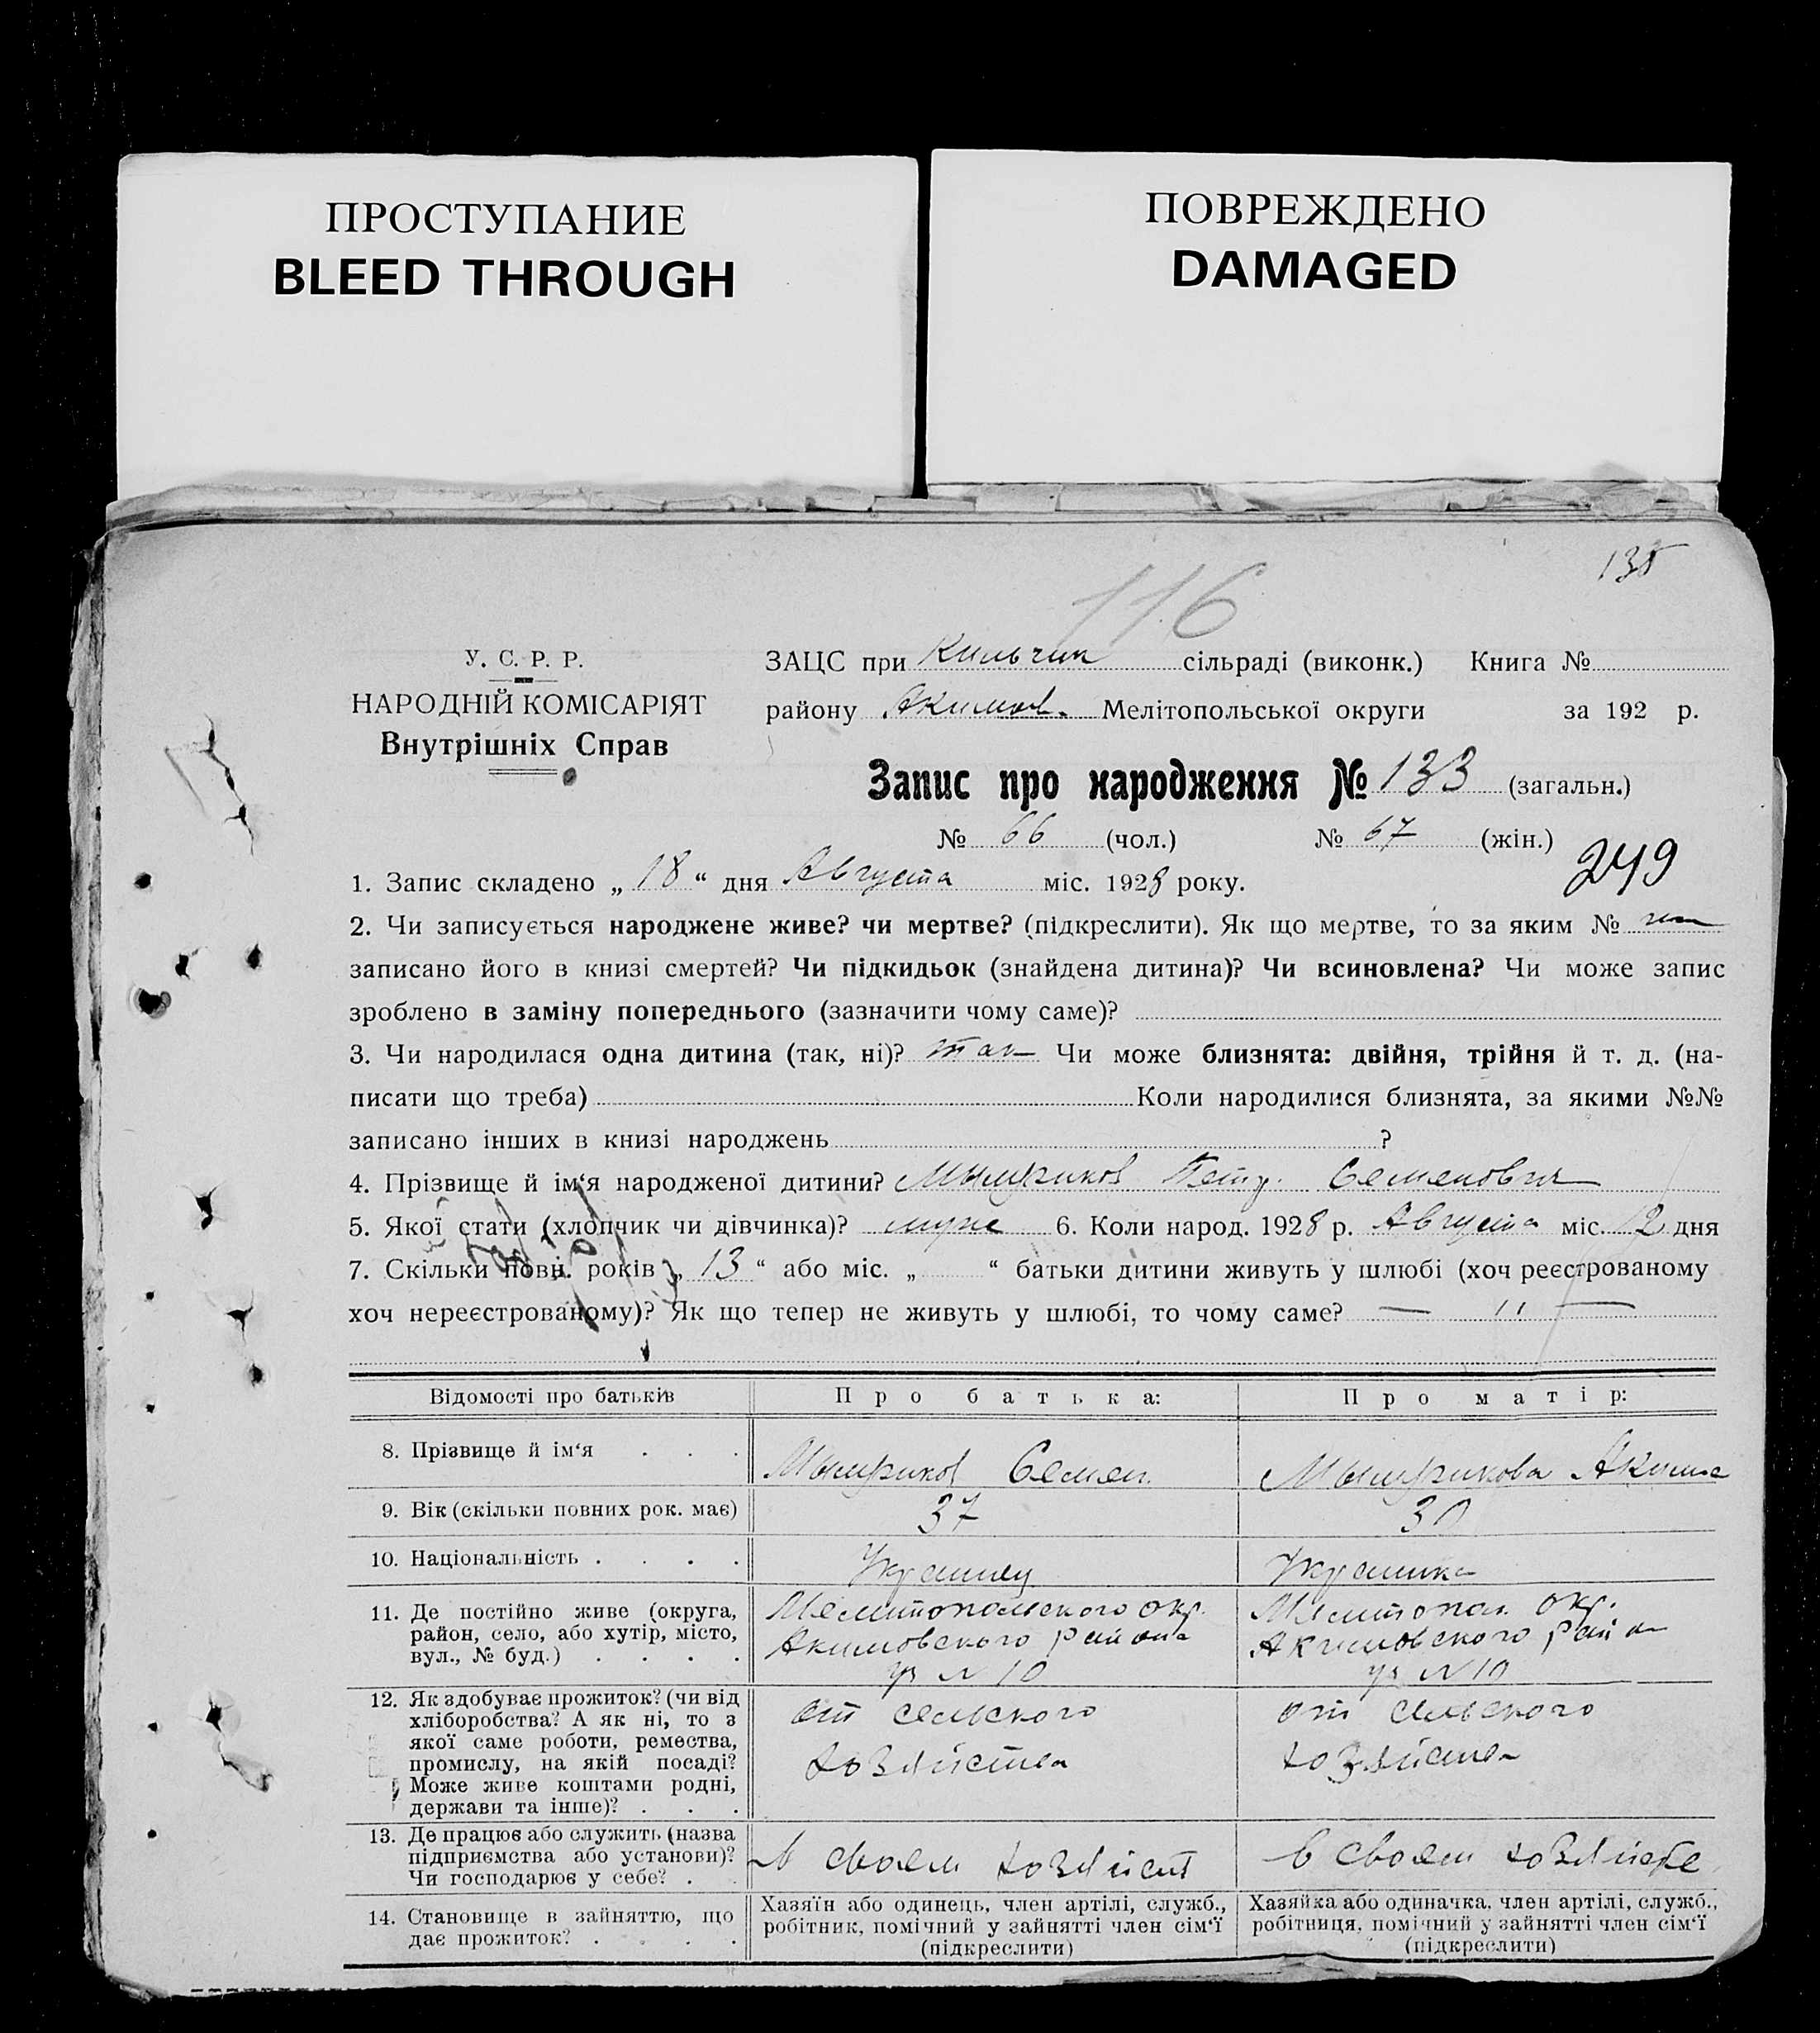 ПРОСТУПАНИЕ
BLEED THROUGH
ПОВРЕЖДЕНО
DAMAGED
116
У. С. Р. Р.
НАРОДНІЙ КОМІСАРІЯТ
Внутрішніх Справ
ЗАЦС при Кильчик сільраді (виконк.) Книга №
району Акимов. Мелітопольської округи за 192 р.
Запис про народження № 133 (загальн.)
№ 66 (чол.) № 67 (жін.)
249
1. Запис складено „ 18 “ дня Августа міс. 1928 року.
2. Чи записується народжене живе? чи мертве? (підкреслити). Як що мертве, то за яким №
записано його в книзі смертей? Чи підкидьок (знайдена дитина)? Чи всиновлена? Чи може запис
зроблено в заміну попереднього (зазначити чому саме)?
3. Чи народилася одна дитина (так, ні)? так Чи може близнята: двійня, трійня й т. д. (на-
писати що треба) Коли народилися близнята, за якими №№
записано інших в книзі народжень ?
4. Прізвище й ім‘я народженої дитини? Петр. Семенович
5. Якої стати (хлопчик чи дівчинка)? муж 6. Коли народ. 1928 р. Августа міс. 12 дня
7. Скільки повн. років „ 13 “ або міс. „ “ батьки дитини живуть у шлюбі (хоч реєстрованому
хоч нереєстрованому)? Як що тепер не живуть у шлюбі, то чому саме? — " —
Відомості про батьків Про батька: Про матір:
8. Прізвище й ім‘я . . . Семен
9. Вік (скільки повних рок. має) 37 30
10. Національність . . . . Украинец Украинка
11. Де постійно живе (округа,
район, село, або хутір, місто,
вул., № буд.) . . . .
Мелитопольского окр.
Акимовского района
уч N 10
Мелитопол. окр.
Акимовского района
уч N 10
12. Як здобуває прожиток? (чи від
хліборобства? А як ні, то з
якої саме роботи, ремества,
промислу, на якій посаді?
Може живе коштами родні,
держави та інше)? . . .
от сельского
хозяйства
от сельского
хозяйства
13. Де працює або служить (назва
підприємства або установи)?
Чи господарює у себе? . .
в своем хозяйст
в своем хозяйстве
14. Становище в зайняттю, що
дає прожиток? . . . .
Хазяїн або одинець, член артілі, служб.,
робітник, помічний у зайнятті член сім‘ї
(підкреслити)
Хазяйка або одиначка, член артілі, служб.,
робітниця, помічний у зайнятті член сім‘ї
(підкреслити)